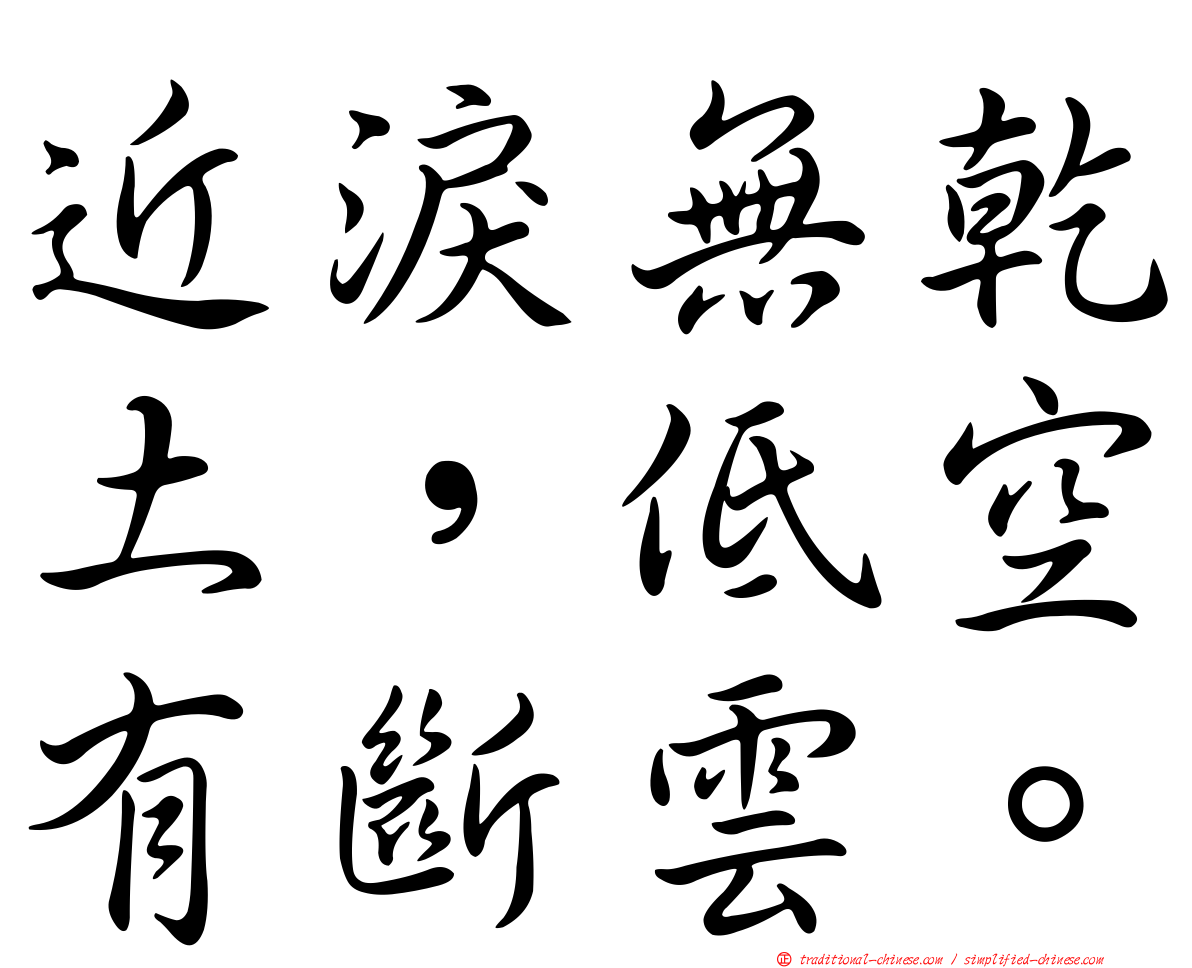 近淚無乾
土，低空
有斷雲。
正 traditional-chinese.com / simplified-chinese.com